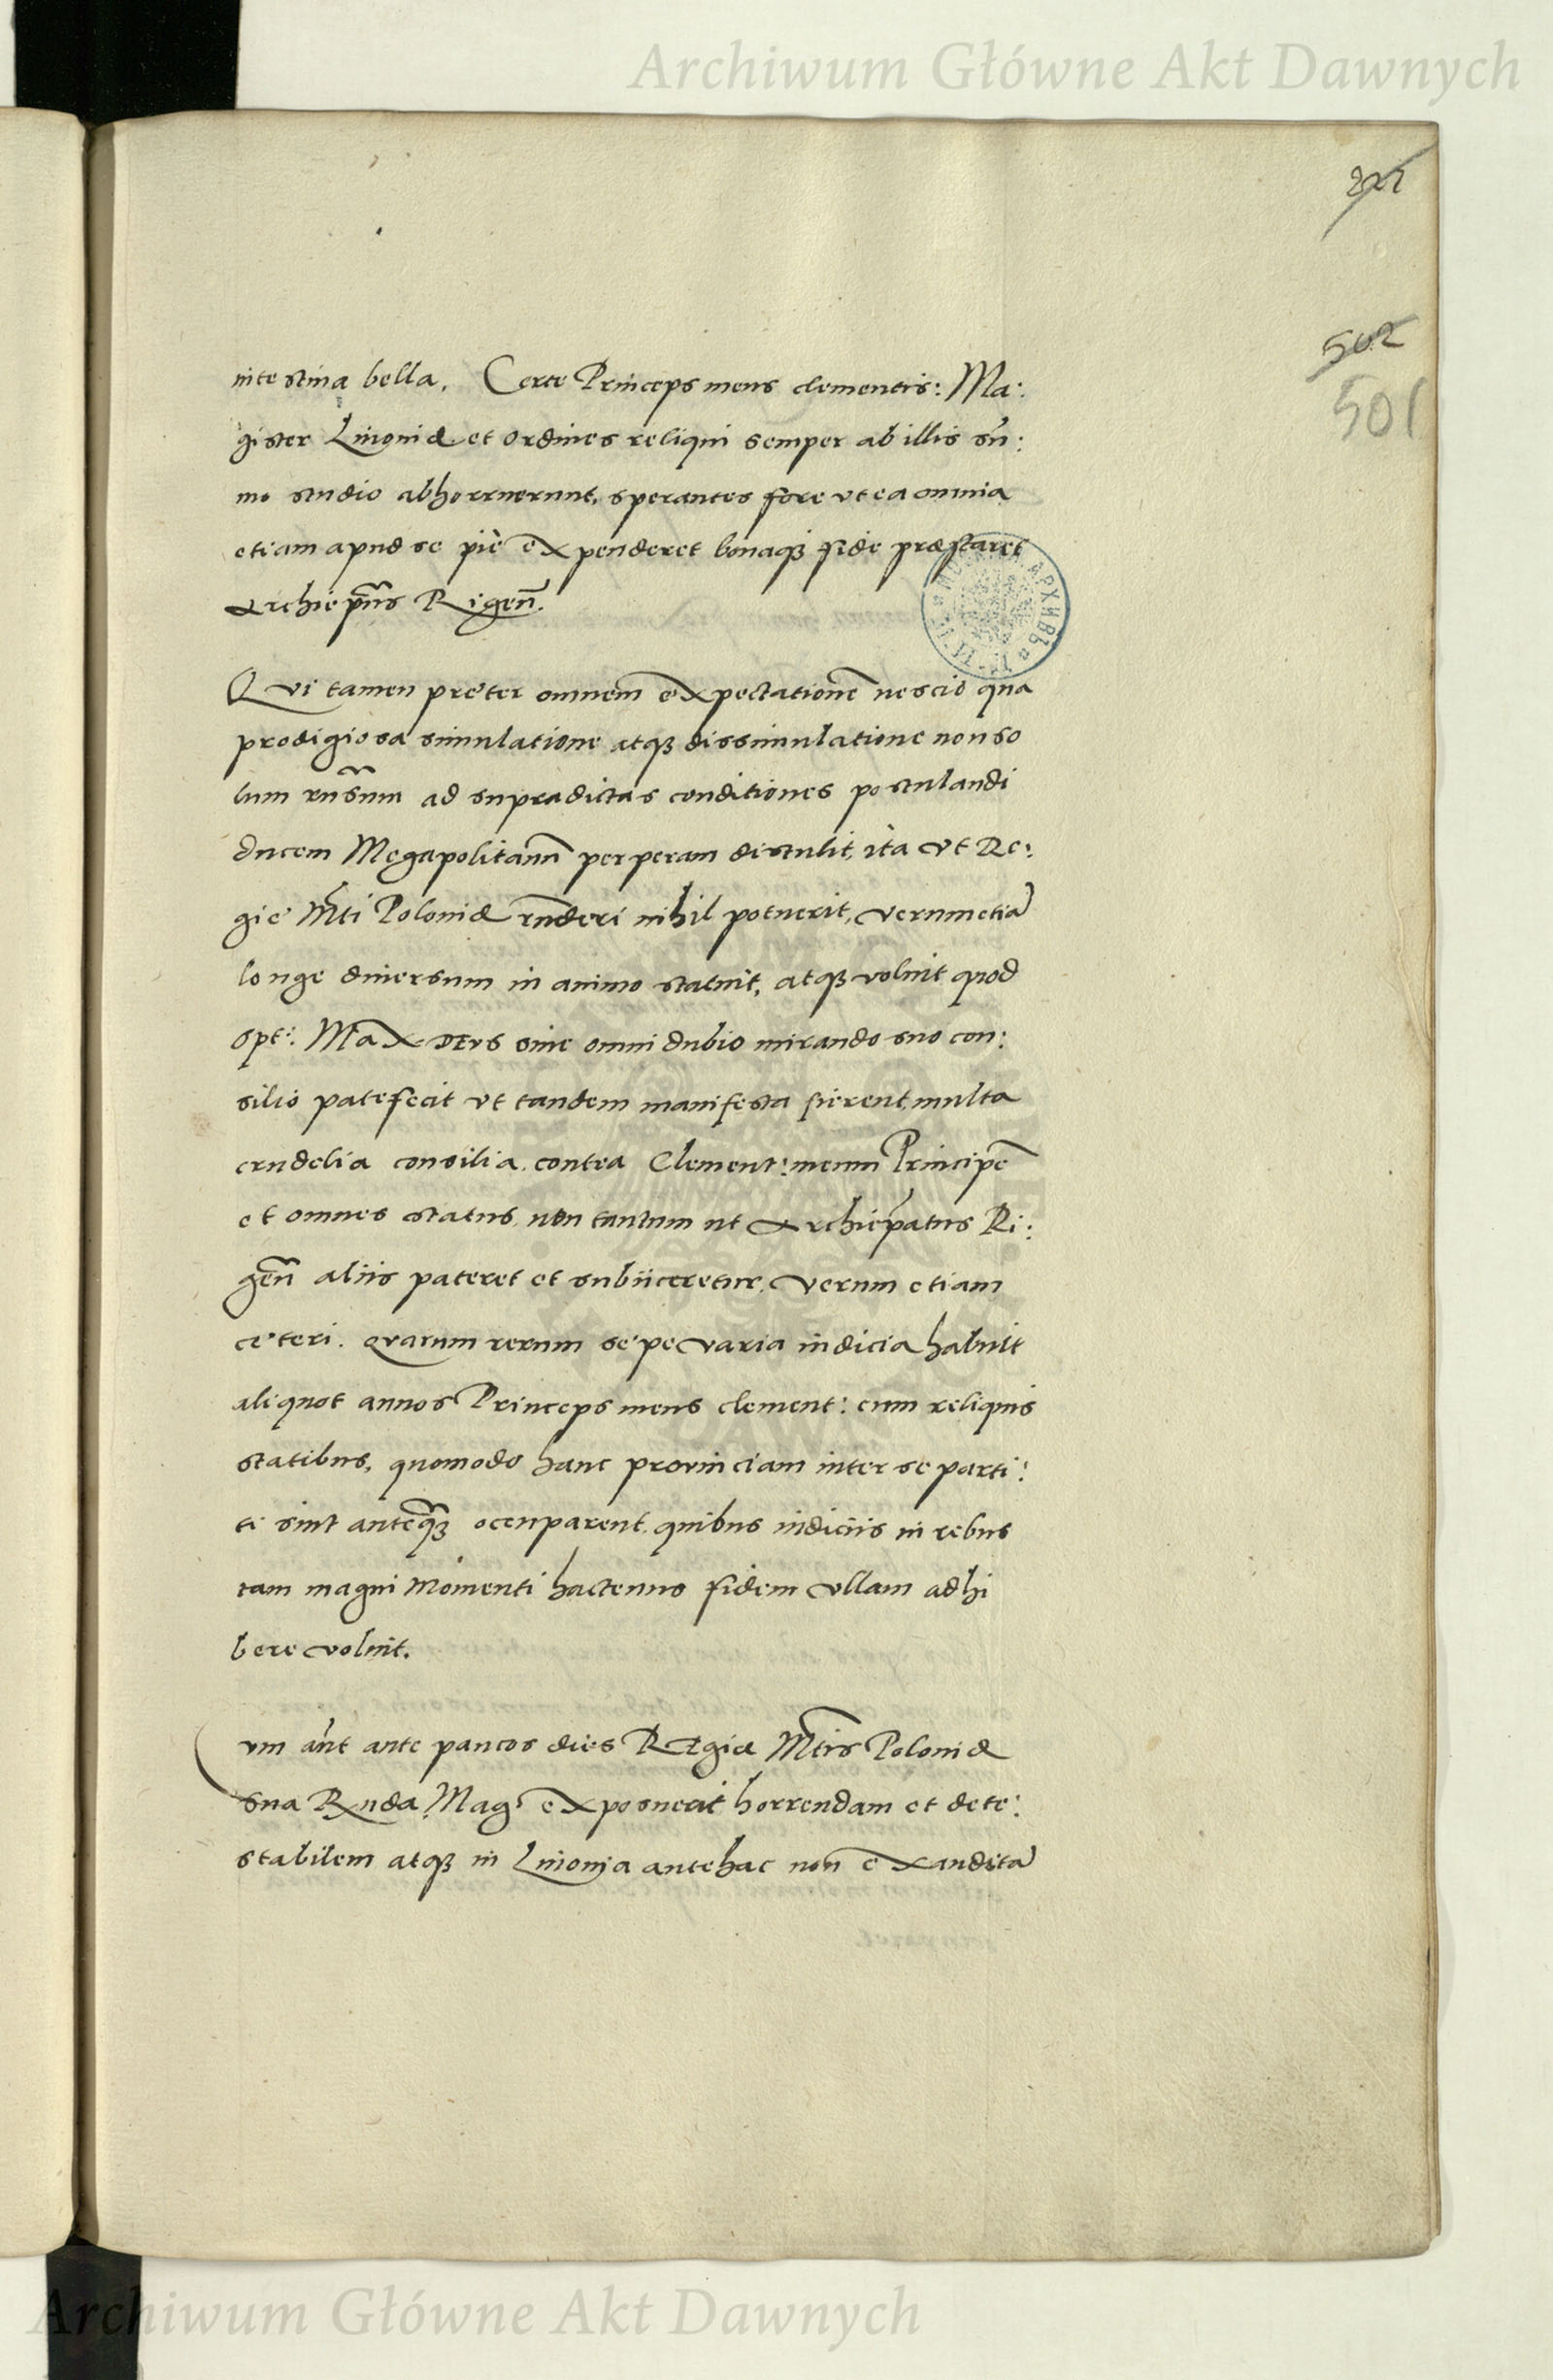 Archiwum Główne Akt Dawnych
502
501
intestina bella. Certe Princeps meus clementis: Ma:
gister Liuoniæ et ordines reliqui semper ab illis sũ:
mo studio abhorruerunt, sperantes fore vt ea omnia
etiam apud se piè expenderet bonaqȝ fide præstaret
Archiep̃us Rigeñ.
Qvi tamen preter omnem expectationẽ nescio qua
prodigiosa simulatione atqȝ dissimulatione non so
lum rñsum ad supradictas conditiones postulandi
ducem Megapolitanũ perperam distulit, ita vt Re:
gie Mti Poloniæ rñderi nihil potuerit, verumetiã
longe diuersum in animo statuit, atqȝ voluit quod
opt: Max DEVS sine omni dubio mirando suo con:
silio patefecit vt tandem manifesta fierent multa
crudelia consilia contra Clement: meum Principẽ
et omnes status non tantum ut Archiep̃atus Ri:
geñ aliis pateret et subiiceretur, verum etiam
ceteri. Qvarum rerum sepe varia indicia habuit
aliquot annos Princeps meus clement: cum reliquis
statibus, quomodo hanc prouinciam inter se parti:
ti sint anteq̃ȝ occuparent, quibus indiciis in rebus
tam magni momenti hactenus fidem vllam adhi
bere voluit.
Cum aũt ante paucos dies REgiæ Mtis Poloniæ
sua Rnda Mag: exposuerit horrendam et dete:
stabilem atqȝ in Liuonia antehac non exauditã
Archiwum Główne Akt Dawnych